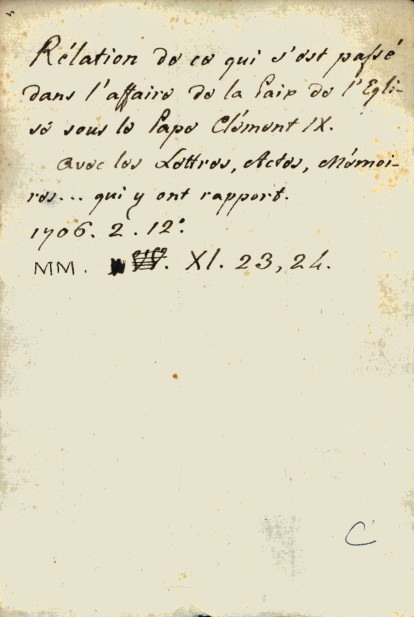 Rélation de ce qui s'est passé
dans l'affaire de la Paix de l'Egli-
se sous le Pape Clément IX.
avec les Lettres, Actes, Mémoi-
res... qui y ont rapport.
1706. 2. 12º.
MM. XI. 23, 24.
C